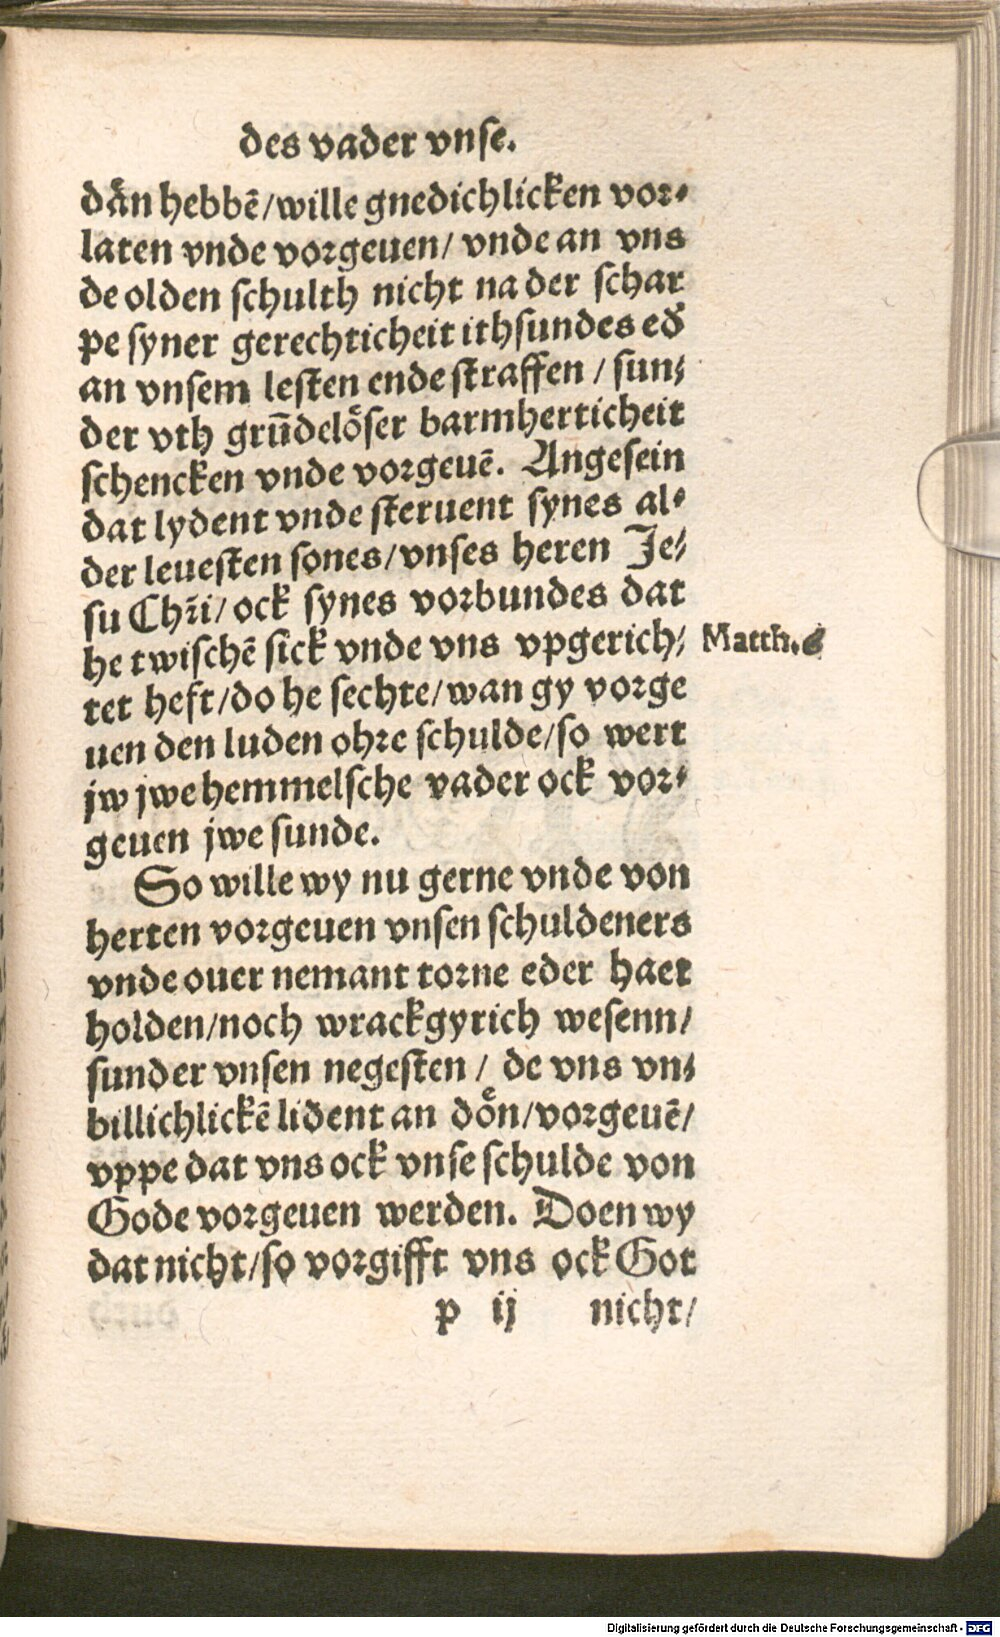 des vader vnse.
dån hebbē/wille gnedichlicken vor-
laten vnde vorgeuen/ vnde an vns
de olden schulth nicht na der schar
pe syner gerechticheit ithsundes ed̄
an vnsem lesten ende straffen / sun-
der vth grūdelöser barmherticheit
schencken vnde vorgeuē. Angesein
dat lydent vnde steruent synes al-
der leuesten sones/vnses heren Je-
su Chr̄i/ ock synes vorbundes dat
he twischē sick vnde vns vpgerich- Matth. 6
tet heft/do he sechte/wan gy vorge
uen den luden ohre schulde/so wert
jw jwe hemmelsche vader ock vor-
geuen jwe sunde.
So wille wy nu gerne vnde von
herten vorgeuen vnsen schuldeners
vnde ouer nemant torne eder haet
holden/noch wrackgyrich wesenn/
sunder vnsen negesten / de vns vn-
billichlickē lident an doͤn/vorgeuē/
vppe dat vns ock vnse schulde von
Gode vorgeuen werden. Doen wy
dat nicht/so vorgifft vns ock Got
p ij nicht/
Digitalisierung gefördert durch die Deutsche Forschungsgemeinschaft - DFG